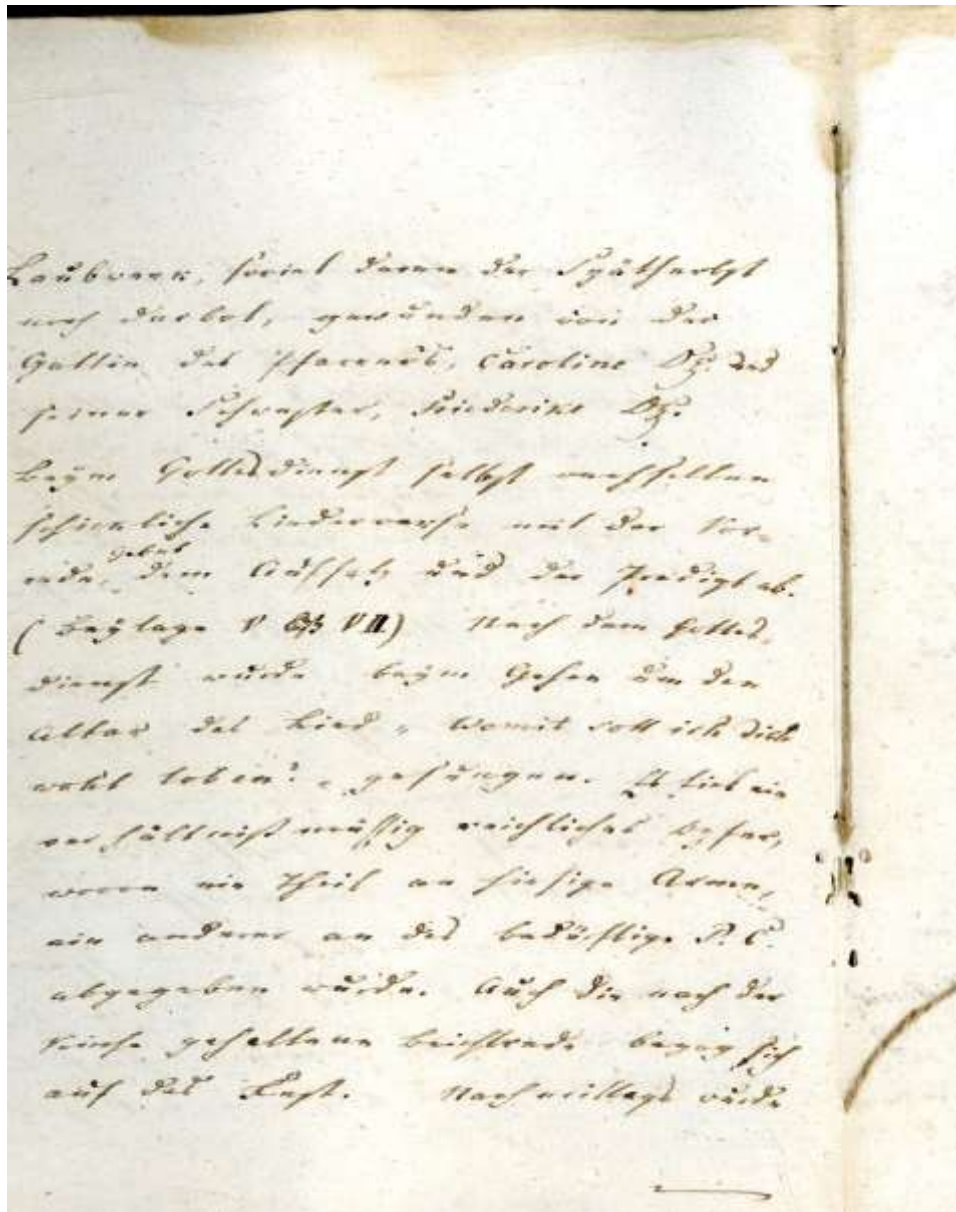 Laubwerk, soviel deren der Spätherbst
noch darbot, gewunden von der
Gattin des Pfarrers, Caroline und
seiner Schwester, Friederike
Beym Gottesdienst selbst wechselten
schickliche Liederverse mit der Vor-
rede, Gebet dem Aufsatz und der Predigt ab.
(Beylage V bis VII) Nach dem Gottes-
dienst wurde beym Gehen um den
Altar das Lied „Womit soll ich dich
wohl loben?" gesungen. Es fiel ein
verhältnißmäßig reichliches Opfer,
wovon ein Theil an hiesige Arme,
ein anderer an das bedürftige
abgegeben wurde. Auch die nach der
Kirche gehaltene Beichtrede bezog sich
auf das Fest. Nachmittags wurde